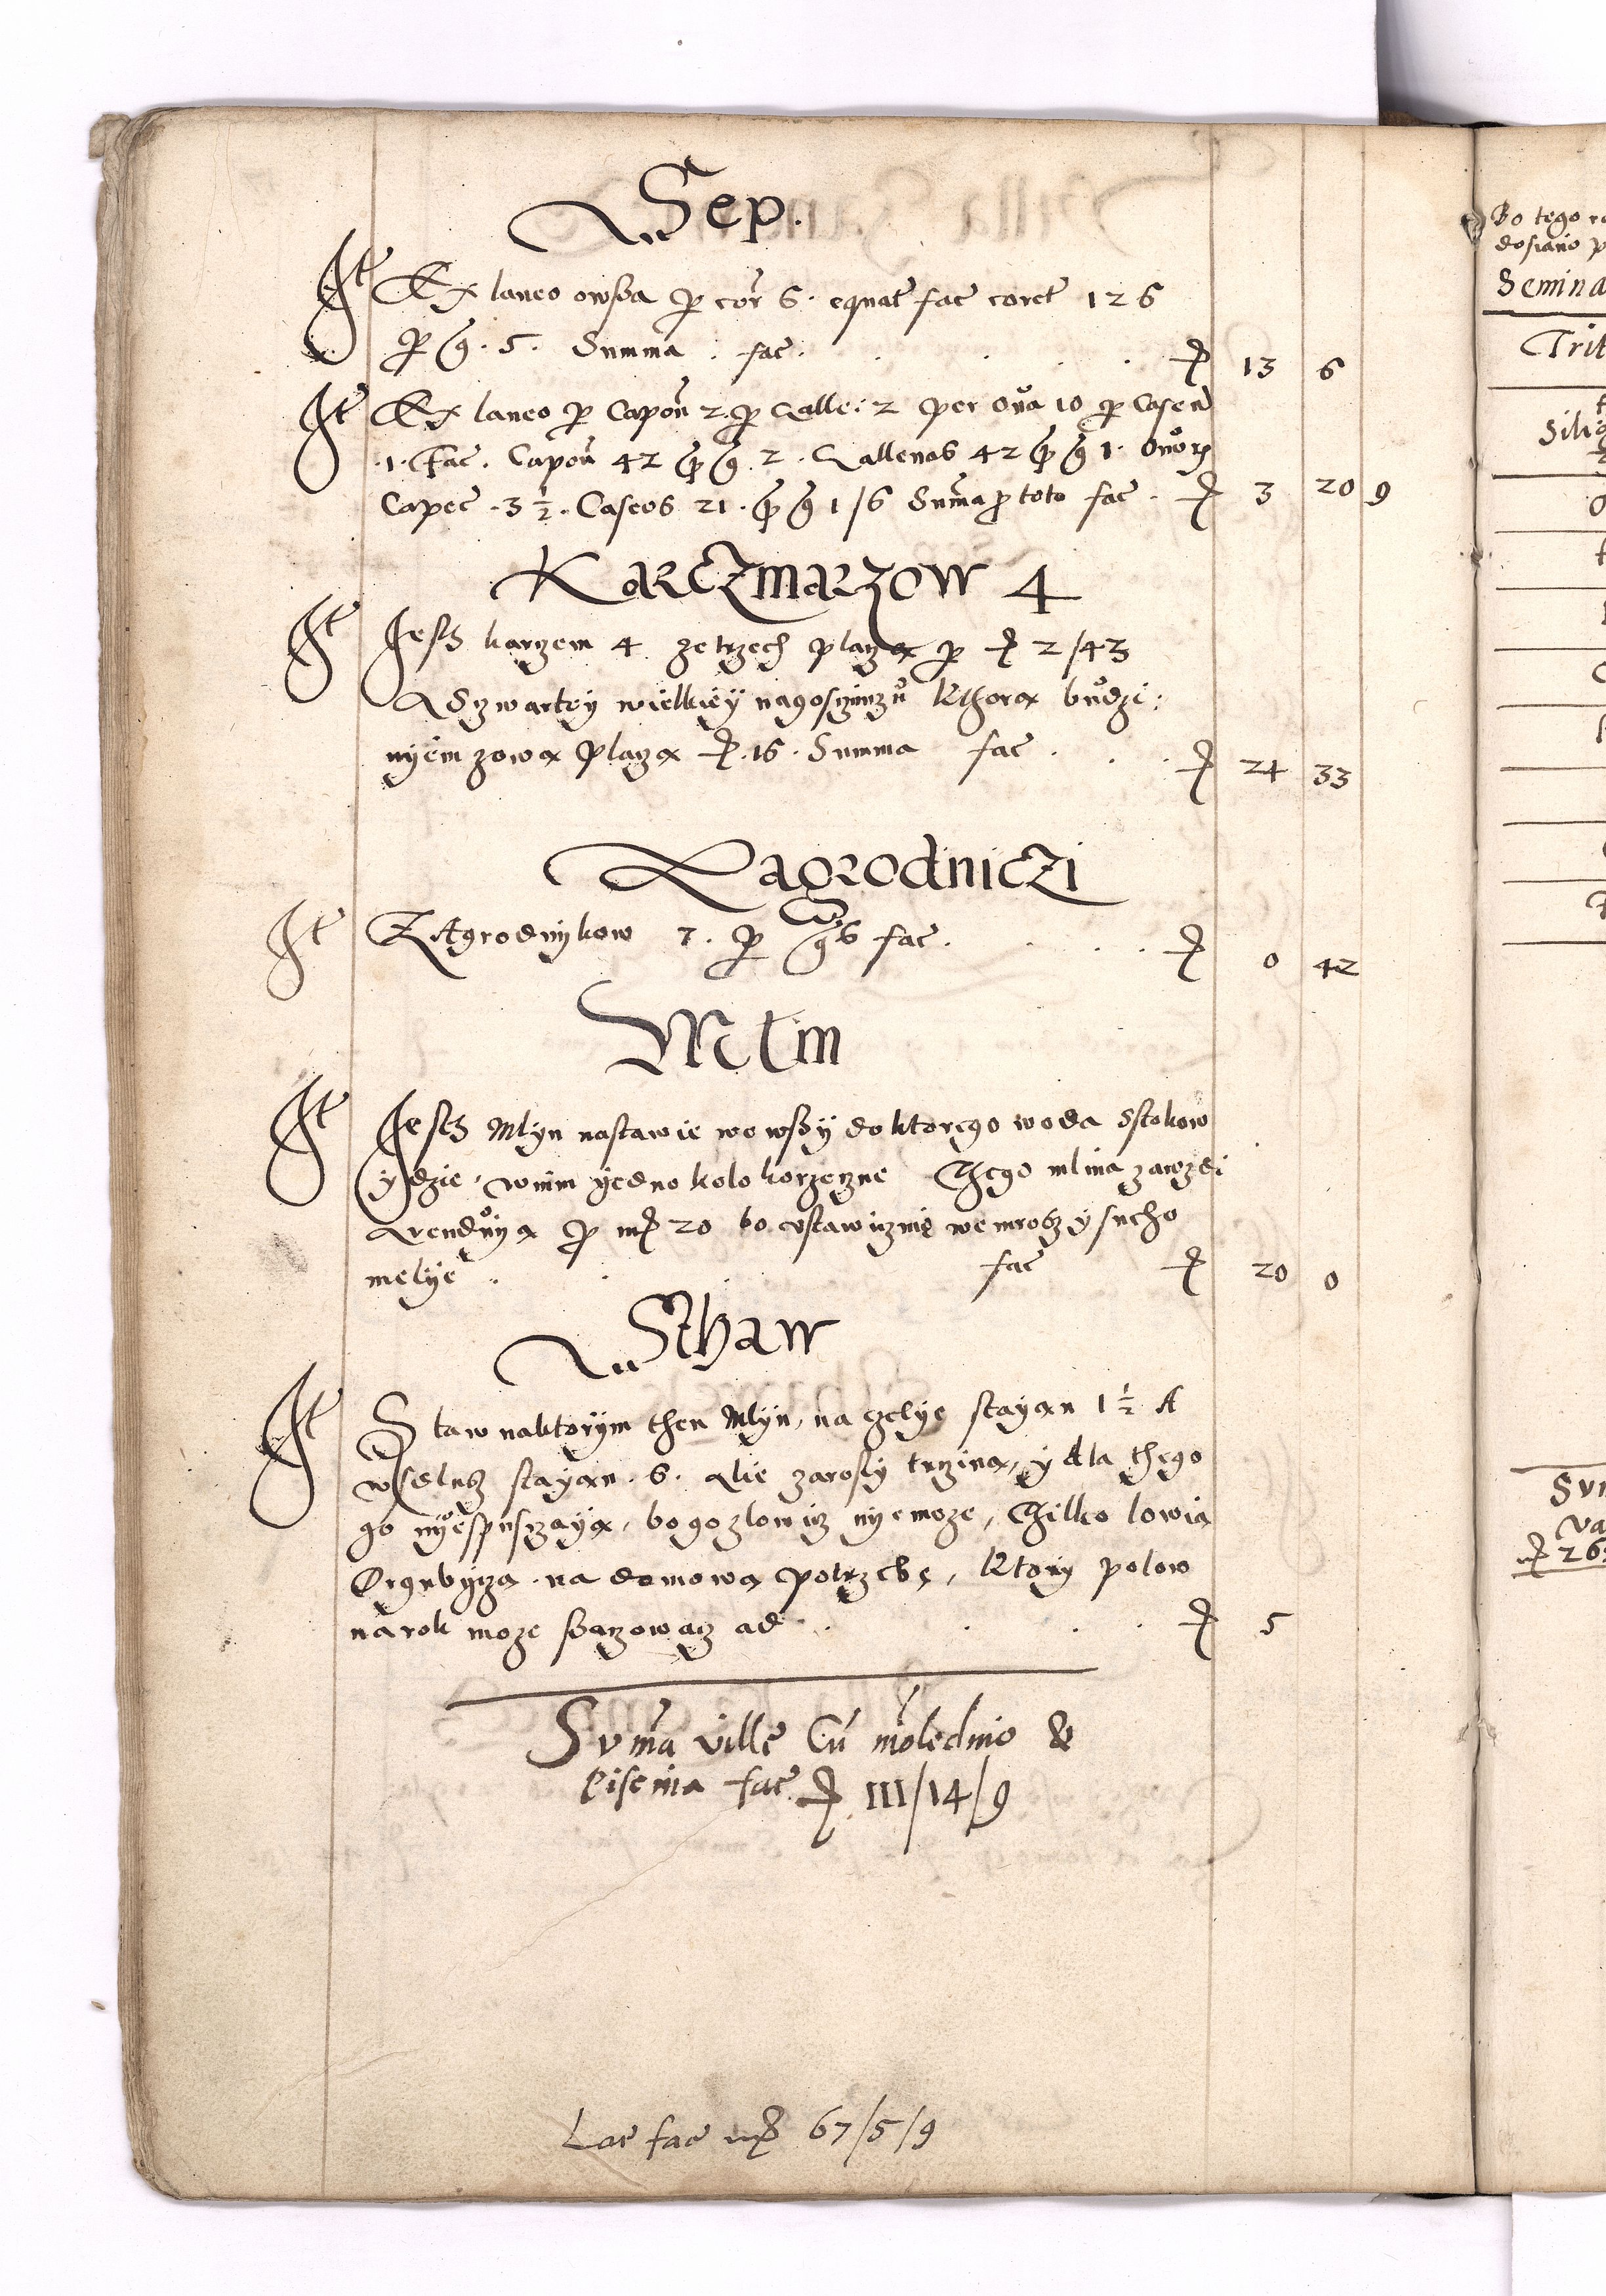 Sep.
It Ex laneo owsa p cor 6. equat fac coret 126
p g. 5. Summa . fac . . . . 13 6
It Ex laneo p Capon 2. p Galle: 2 per ova 10 p Caseū
.1. Fac. Capon 42 p g 2. Gallenas 42 p g 1. Ovorȝ
Capec .3½. Caseos 21. p g 1/6 Suma p toto fac . 3 20 9
Karczmarzow 4
It Jesth karzem 4 zetrzech placza p 2/43
A Szwartey wielkiey nagosczinczu kthora budze:
nyem zowa placza .16. Summa fac . . . 24 33
Zagrodniczi
It ZAgrodnykow 7. p g 6 fac. . . . 0 42
Mlin
It Jesth Mlyn nastawie wowsy doktorego woda Stokow
ydzie. wnim yedno kolo korzeczne Thego mlina zawzdi
Arenduya p mr 20 bo ustawicznie wemrosz y sucho
melye . . . fac 20 0
Sthaw
It Staw naktorym then Mlyn, na czelye stayan 1½ A
wsdlusz stayan .6. Alie zarosly trzina, y dla thego
go nyespusczaya, bo gozlowicz nyemoze, Thilko lowia
Drgubycza na domowa potrzebe, ktory polow
narok moze saczowacz ad . . . . 5
Suma ville Cū molednio &
Piscina fac 111/14/9
Lac fac mr 67/5/9
Bo tego
dosiano p
Semina
Trit
Silig
Sum
Va
26